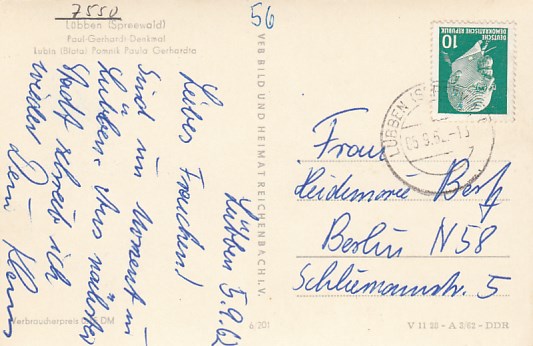 7550
Lübben (Spreewald)
Paul-Gerhardt-Denkmal
Lubin (Błota) Pomnik Paula Gerhardta
56
VEB BILD UND HEIMAT REICHENBACH I. V.
Lübben 5.9.62
Liebes Frauchen!
Sind im Moment in
Lübben. Aus nächster
Stadt schreib ich
wieder Dein Klaus
Verbraucherpreis DM
6/201
DEUTSCHE
DEMOKRATISCHE REPUBLIK
10
LÜBBEN
Frau
Heidemarie Berg
Berlin N58
Schliemannstr. 5
V 11 28 - A 3/62 - DDR